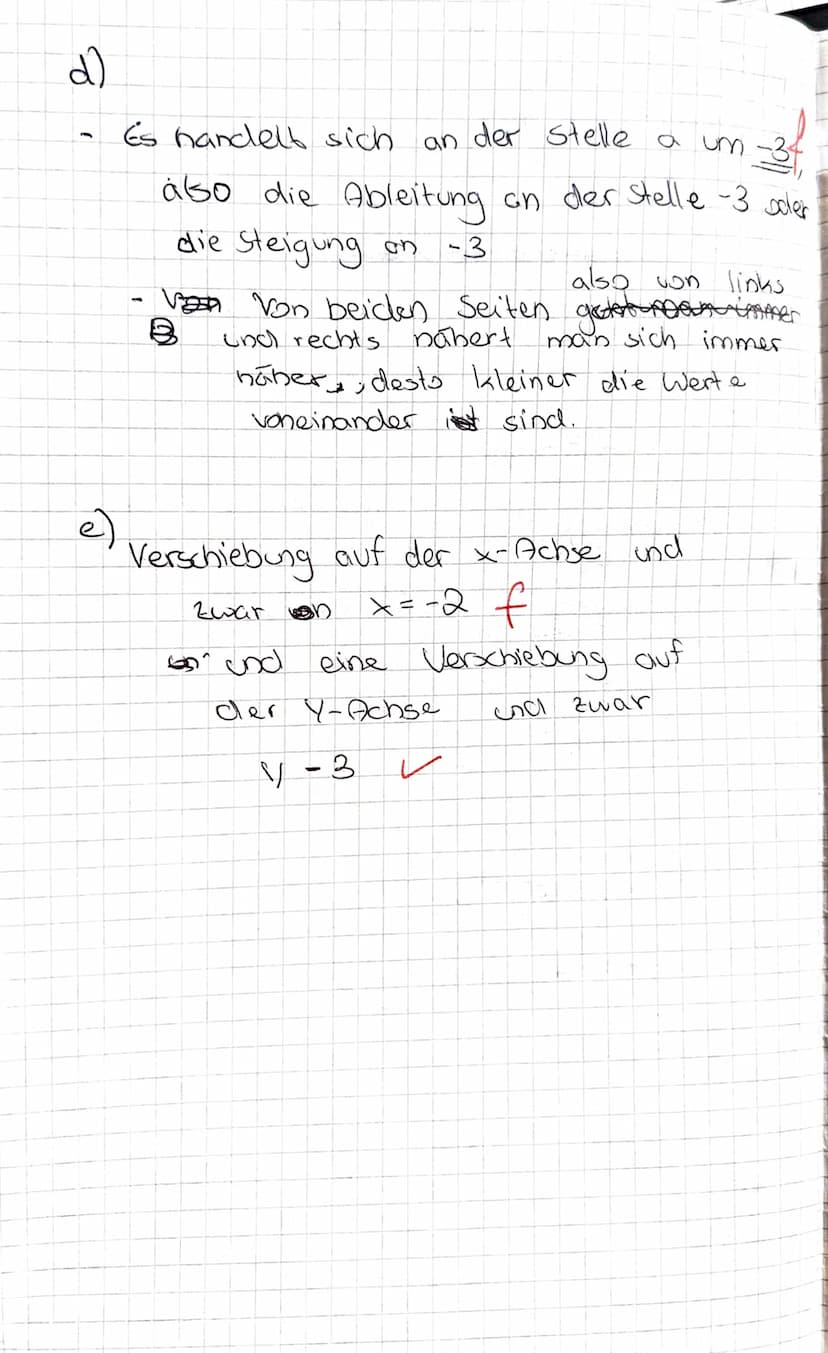 d)
- Es handelt sich an der Stelle a um -3 f,
also die Ableitung an der Stelle -3 oder
die Steigung an -3
also von links
- Von beiden Seiten
und rechts nähert man sich immer
näher, desto kleiner die Werte
voneinander sind.
e)
Verschiebung auf der x-Achse und
zwar x = -2 f
und eine Verschiebung auf
der Y-Achse und zwar
y - 3 ✓